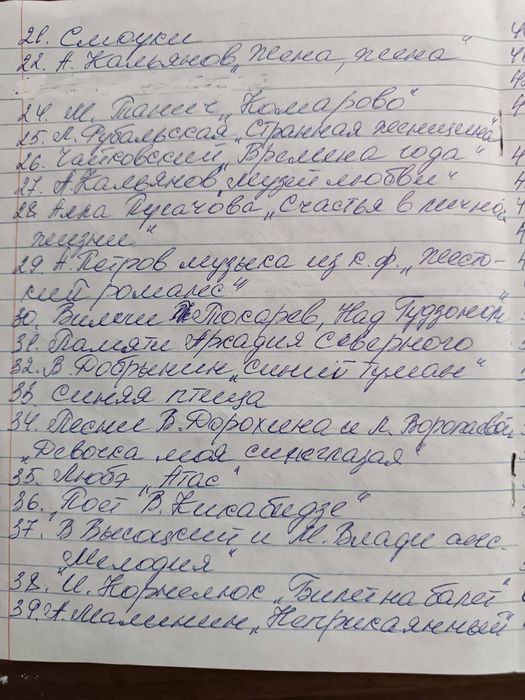 21. Смоуки
22. А. Кальянов „Жена, жена"
24. М. Танич „Комарово"
25. Л. Рубальсская „Странная женщина"
26. Чайковский „Времена года"
27. А. Кальянов „Музей любви"
28 Алла Пугачова „Счастья в личной
жизни"
29. А. Петров музыка из к.ф. „Жесто-
кий романс"
30. Вилли Токарев „Над Гудзоном"
31. Памяти Аркадия Северного
32. В. Добрынин „Синий туман"
33 Синяя птица
34. Песни В. Дорохина и Л. Воропаевой
„Девочка моя синеглазая"
35. Любэ „Атас"
36. „Поёт В. Кикабидзе"
37. В Высоцкий и М. Влади анс.
„Мелодия"
38. И. Корнелюк „Билет на балет"
39. А. Малинин „Неприкаянный"